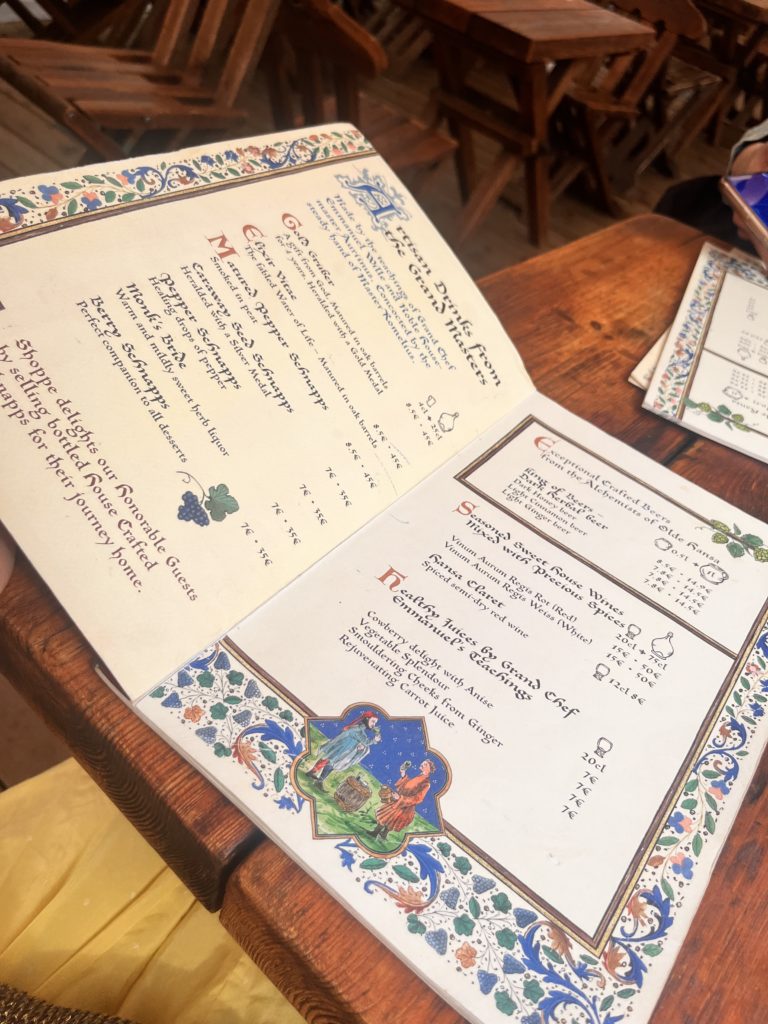 Artisan Drinks from
the Grand Masters
Made by the teaching of Grand Chef
Emmanuel with our noble House-
master Aurrian. Concocted by the
steady hand of Master Romelius.
4cl + 25cl
Gold Gruber
A gift from God. Matured in oak barrels
for 4 years. Heralded with a Gold Medal
8.5€ • 45€
Elyxir Vitae
The fabled Water of Life – Matured in oak barrels
8.5€ • 45€
Matured Pepper Schnapps
Smoked in peat
8.5€ • 45€
Caraway Seed Schnapps
Heralded with a Silver Medal
7€ • 35€
Pepper Schnapps
Healing drops of pepper
7€ • 35€
Monk's Bride
Warm and mildly sweet herb liquor
7€ • 35€
Berry Schnapps
Perfect companion to all desserts
7€ • 35€
Shoppe delights our Honorable Guests
by selling bottled House Crafted
Schnapps for their journey home.
Exceptional Crafted Beers
from the Alchemists of Olde Hansa
0.5l + 1l
King of Beers
Dark Herball beer
Dark Honey beer
Light Cinnamon beer
Light Ginger beer
Savored Sweet House Wines
Mixed with Precious Spices
20cl + 75cl
Vinum Aurum Regis Rot (Red) 15€ • 50€
Vinum Aurum Regis Weiss (White) 15€ • 50€
Hansa Claret
Spiced semi-dry red wine
12cl 8€
Healthy Juices by Grand Chef
Emmanuel's Teachings
20cl
Cowberry delight with Anise 7€
Vegetable Splendour 7€
Smouldering Cheeks from Ginger 7€
Rejuvenating Carrot Juice 7€